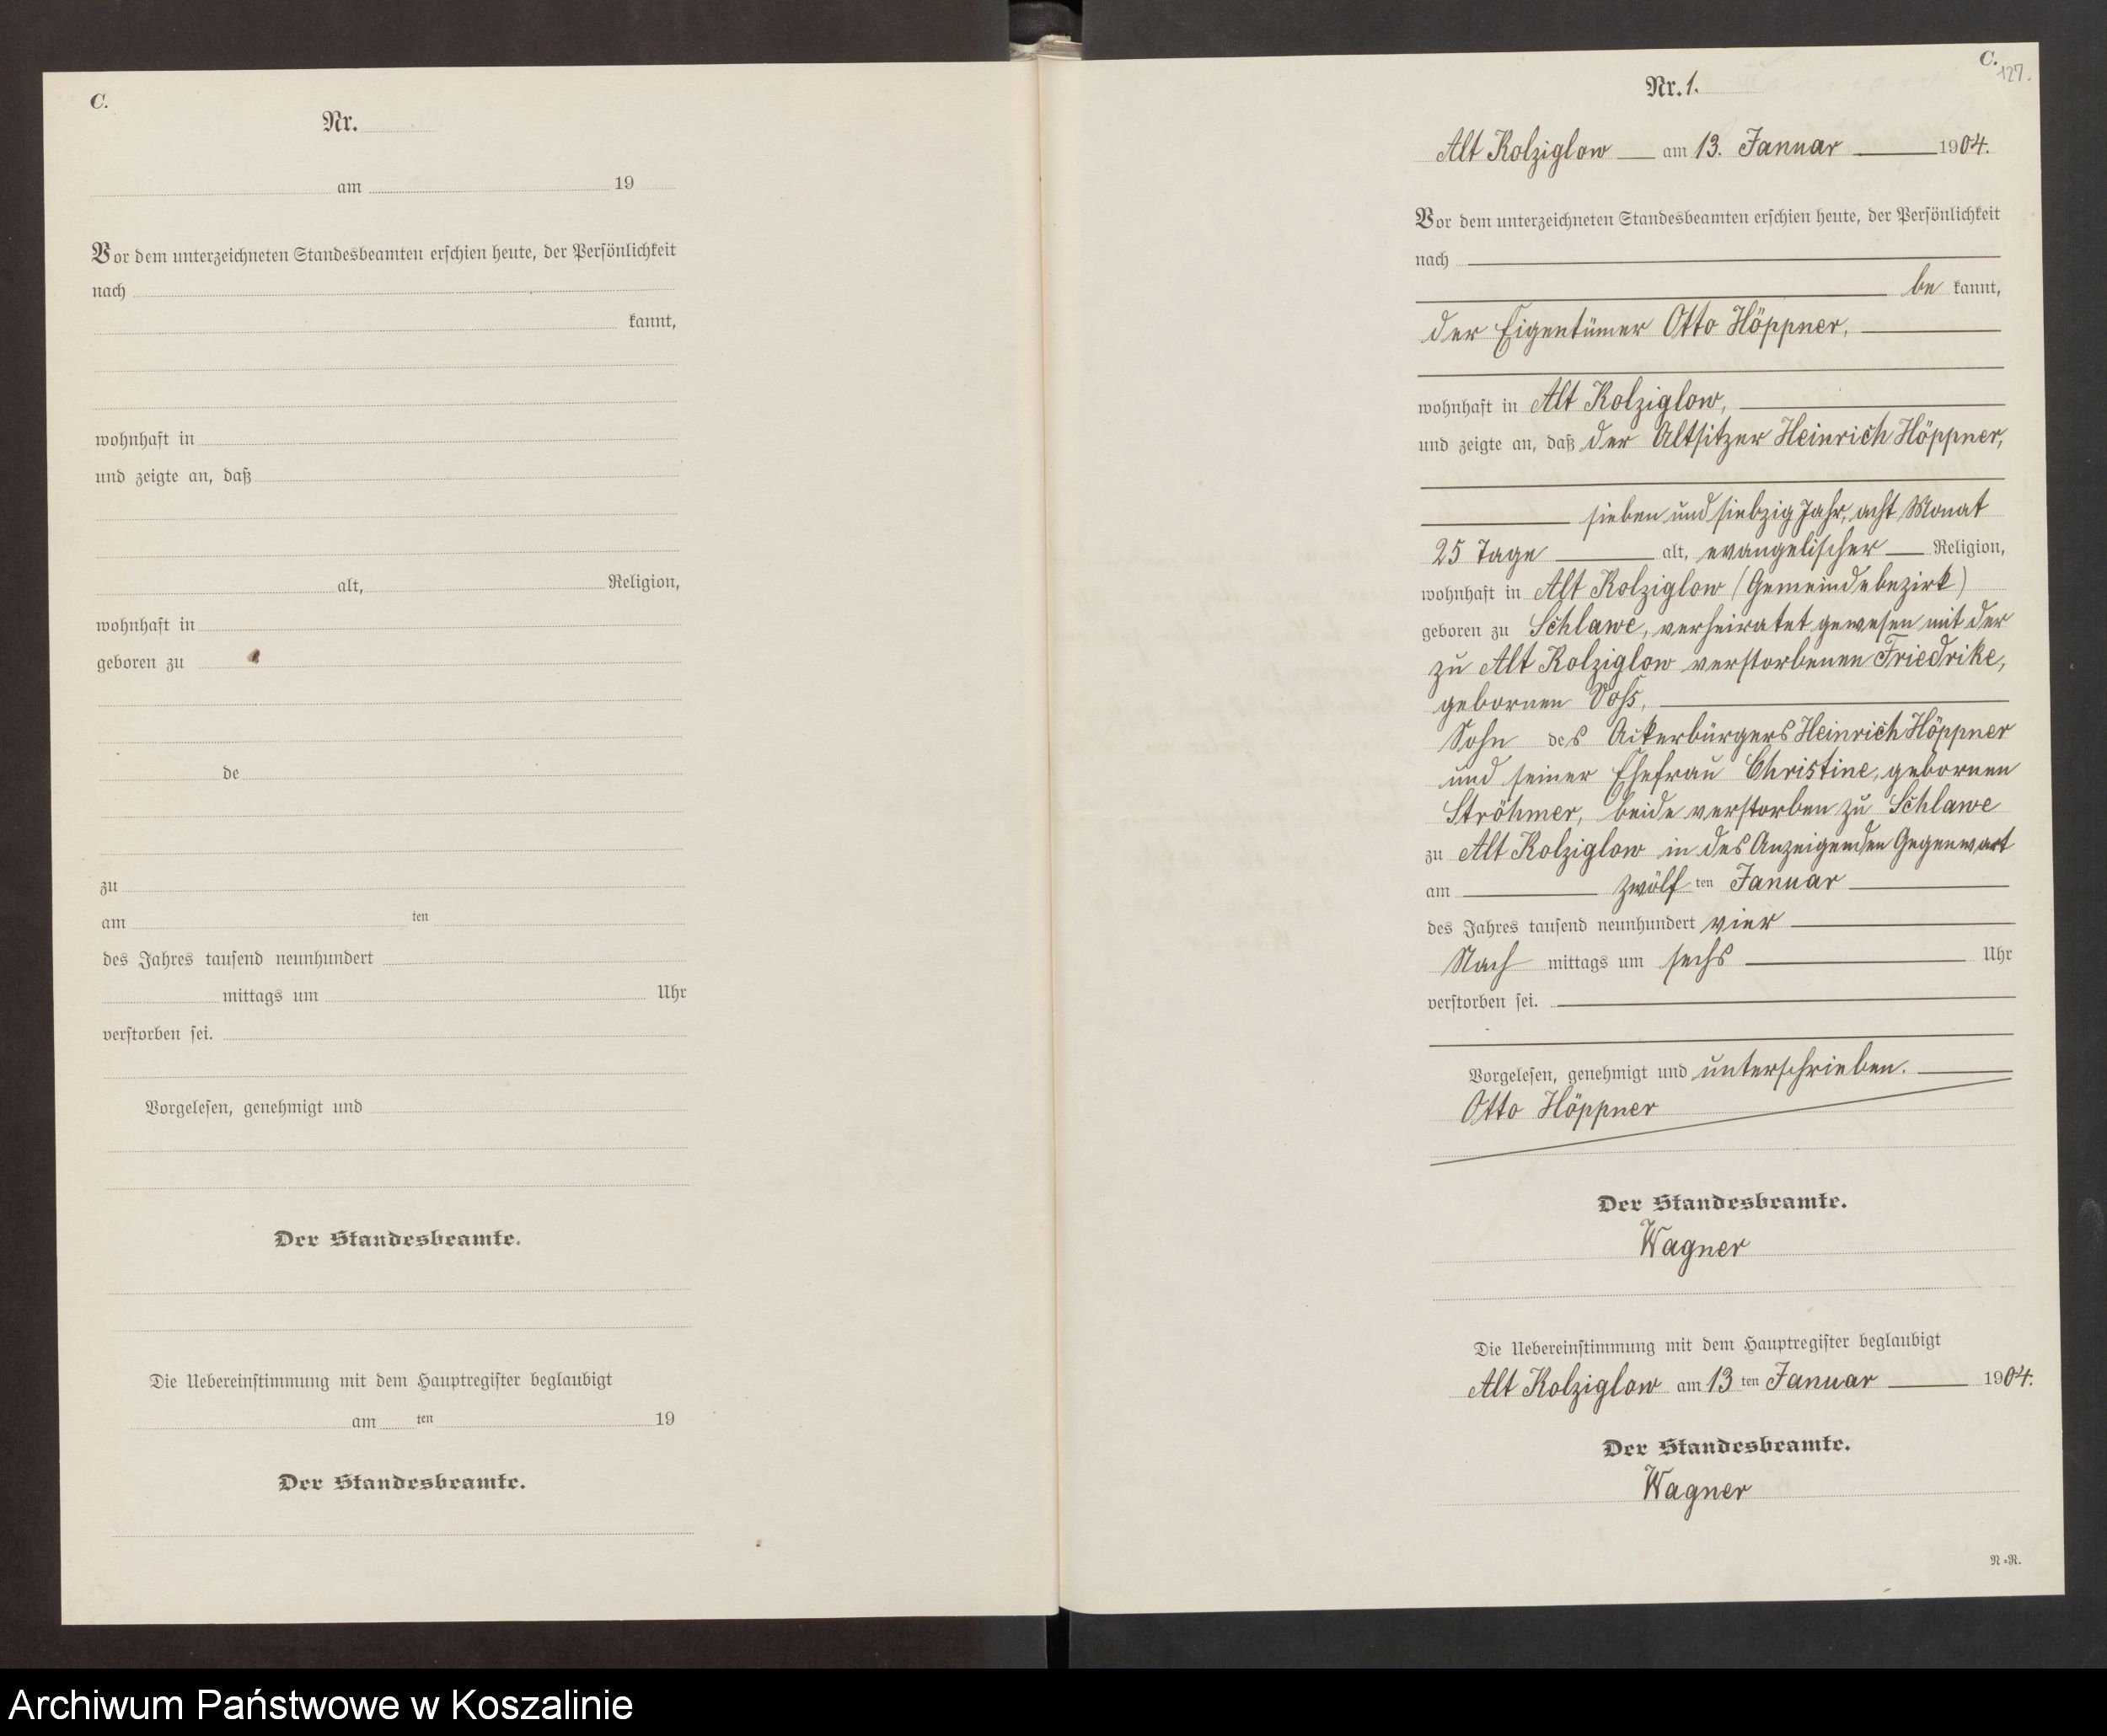 C.
Nr.
am 19
Vor dem unterzeichneten Standesbeamten erschien heute, der Persönlichkeit
nach
kannt,
wohnhaft in
und zeigte an, daß
alt, Religion,
wohnhaft in
geboren zu
de
zu
am ten
des Jahres tausend neunhundert
mittags um Uhr
verstorben sei.
Vorgelesen, genehmigt und
Der Standesbeamte.
Die Uebereinstimmung mit dem Hauptregister beglaubigt
am ten 19
Der Standesbeamte.
C.
127.
Nr. 1.
Alt Kolziglow am 13. Januar 1904.
Vor dem unterzeichneten Standesbeamten erschien heute, der Persönlichkeit
nach
be kannt,
der Eigentümer Otto Höppner,
wohnhaft in Alt Kolziglow,
und zeigte an, daß der Altsitzer Heinrich Höppner,
sieben und siebzig Jahr, acht Monat
25 Tage alt, evangelischer Religion,
wohnhaft in Alt Kolziglow (Gemeindebezirk)
geboren zu Schlawe, verheiratet gewesen mit der
zu Alt Kolziglow verstorbenen Friedrike,
gebornen Voß,
Sohn des Ackerbürgers Heinrich Höppner
und seiner Ehefrau Christine, gebornen
Ströhmer, beide verstorben zu Schlawe
zu Alt Kolziglow in des Anzeigenden Gegenwart
am zwölf ten Januar
des Jahres tausend neunhundert vier
Nach mittags um sechs Uhr
verstorben sei.
Vorgelesen, genehmigt und unterschrieben.
Otto Höppner
Der Standesbeamte.
Wagner
Die Uebereinstimmung mit dem Hauptregister beglaubigt
Alt Kolziglow am 13 ten Januar 1904.
Der Standesbeamte.
Wagner
N=R.
Archiwum Państwowe w Koszalinie